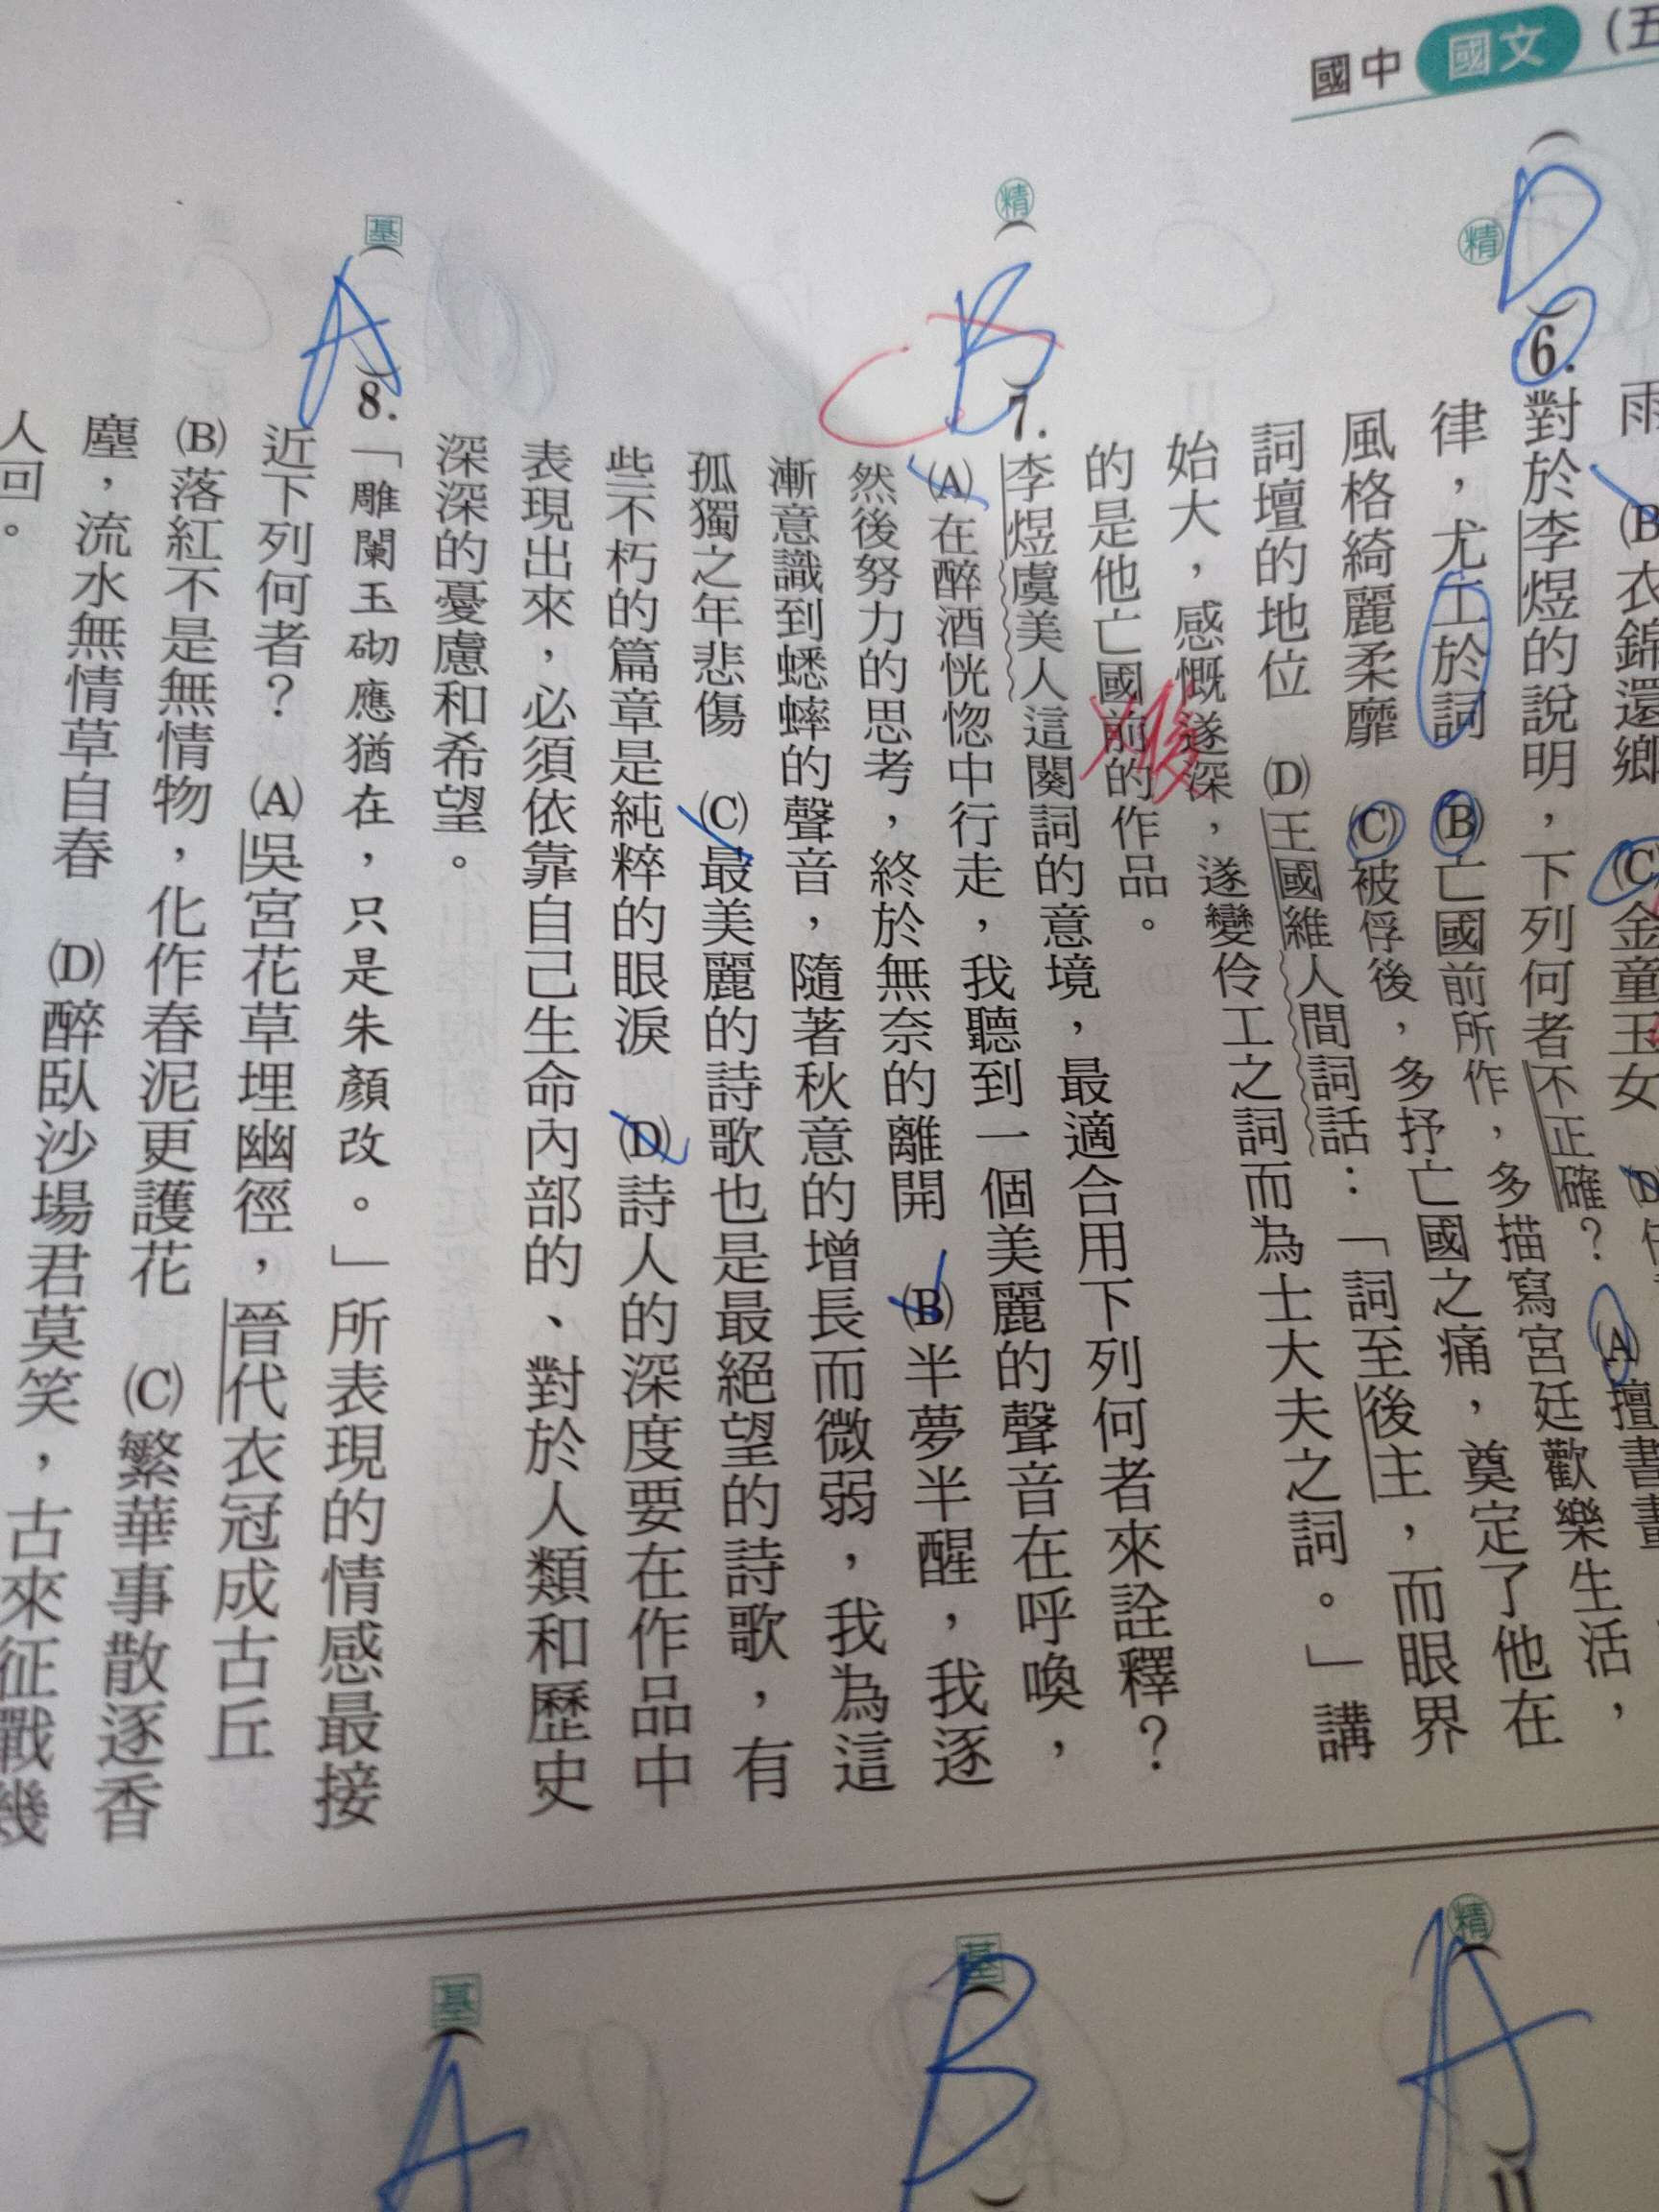 國中 國文 (五
雨 (B)衣錦還鄉 (C)金童玉女 (D)
(D)6.對於李煜的說明，下列何者不正確？(A)擅書畫
律，尤工於詞 (B)亡國前所作，多描寫宮廷歡樂生活，
風格綺麗柔靡 (C)被俘後，多抒亡國之痛，奠定了他在
詞壇的地位 (D)王國維人間詞話：「詞至後主，而眼界
始大，感慨遂深，遂變伶工之詞而為士大夫之詞。」講
的是他亡國前的作品。
後
精
精(B)7.李煜虞美人這闋詞的意境，最適合用下列何者來詮釋？
C
(A)在醉酒恍惚中行走，我聽到一個美麗的聲音在呼喚，
然後努力的思考，終於無奈的離開 (B)半夢半醒，我逐
漸意識到蟋蟀的聲音，隨著秋意的增長而微弱，我為這
孤獨之年悲傷 (C)最美麗的詩歌也是最絕望的詩歌，有
些不朽的篇章是純粹的眼淚 (D)詩人的深度要在作品中
表現出來，必須依靠自己生命內部的、對於人類和歷史
深深的憂慮和希望。
基(A)8.「雕闌玉砌應猶在，只是朱顏改。」所表現的情感最接
近下列何者？ (A)吳宮花草埋幽徑，晉代衣冠成古丘
(B)落紅不是無情物，化作春泥更護花 (C)繁華事散逐香
塵，流水無情草自春 (D)醉臥沙場君莫笑，古來征戰幾
人回。
精(A)11
基(B)
基(A